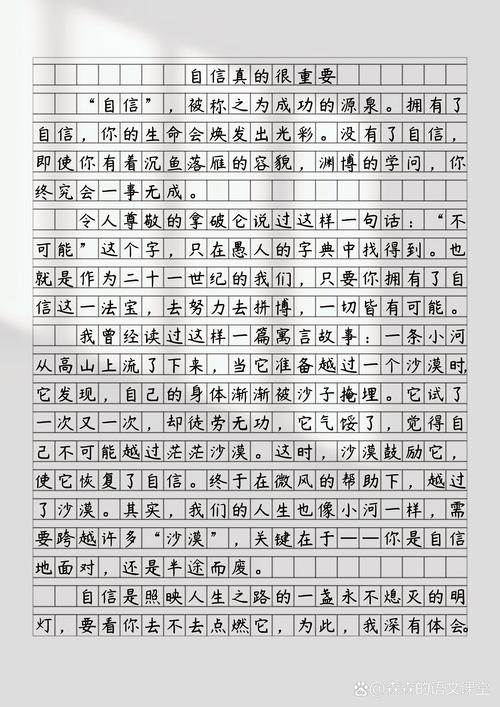 自信真的很重要
“自信”，被称之为成功的源泉。拥有了
自信，你的生命会焕发出光彩。没有了自信，
即使你有着沉鱼落雁的容貌，渊博的学问，你
终究会一事无成。
令人尊敬的拿破仑说过这样一句话：“不
可能”这个字，只在愚人的字典中找得到。也
就是作为二十一世纪的我们，只要你拥有了自
信这一法宝，去努力去拼博，一切皆有可能。
我曾经读过这样一篇寓言故事：一条小河
从高山上流了下来，当它准备越过一个沙漠时，
它发现，自己的身体渐渐被沙子掩埋。它试了
一次又一次，却徒劳无功，它气馁了，觉得自
己不可能越过茫茫沙漠。这时，沙漠鼓励它，
使它恢复了自信。终于在微风的帮助下，越过
了沙漠。其实，我们的人生也像小河一样，需
要跨越许多“沙漠”，关键在于——你是自信
地面对，还是半途而废。
自信是照映人生之路的一盏永不熄灭的明
灯，要看你去不去点燃它，为此，我深有体会。
森森的语文课堂